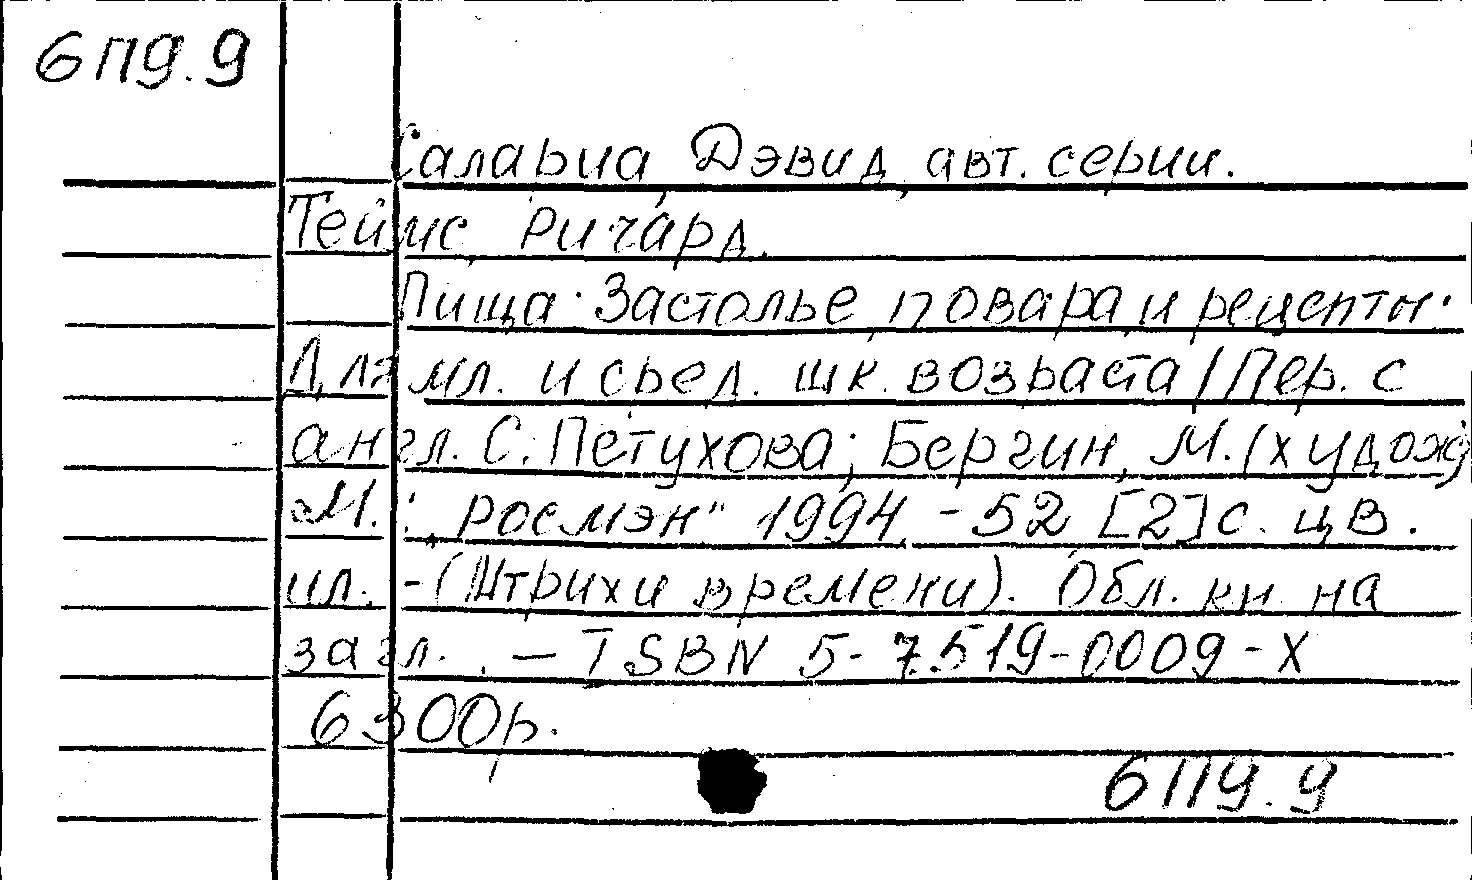 6П9.9
Салариа, Дэвид, авт. серии.
Теймс, Ричард.
Пища. Застолье, повара и рецепты.
Для мл. и сред. шк. возраста / Пер. с
англ. С. Петухова; Бергин, М. (худож)
М.: „Росмэн" 1994. - 52 [2] с. цв.
ил. - (Штрихи времени). Обл. кн. на
загл. . — ISBN 5-7519-0009-X
6300р.
6П9.9